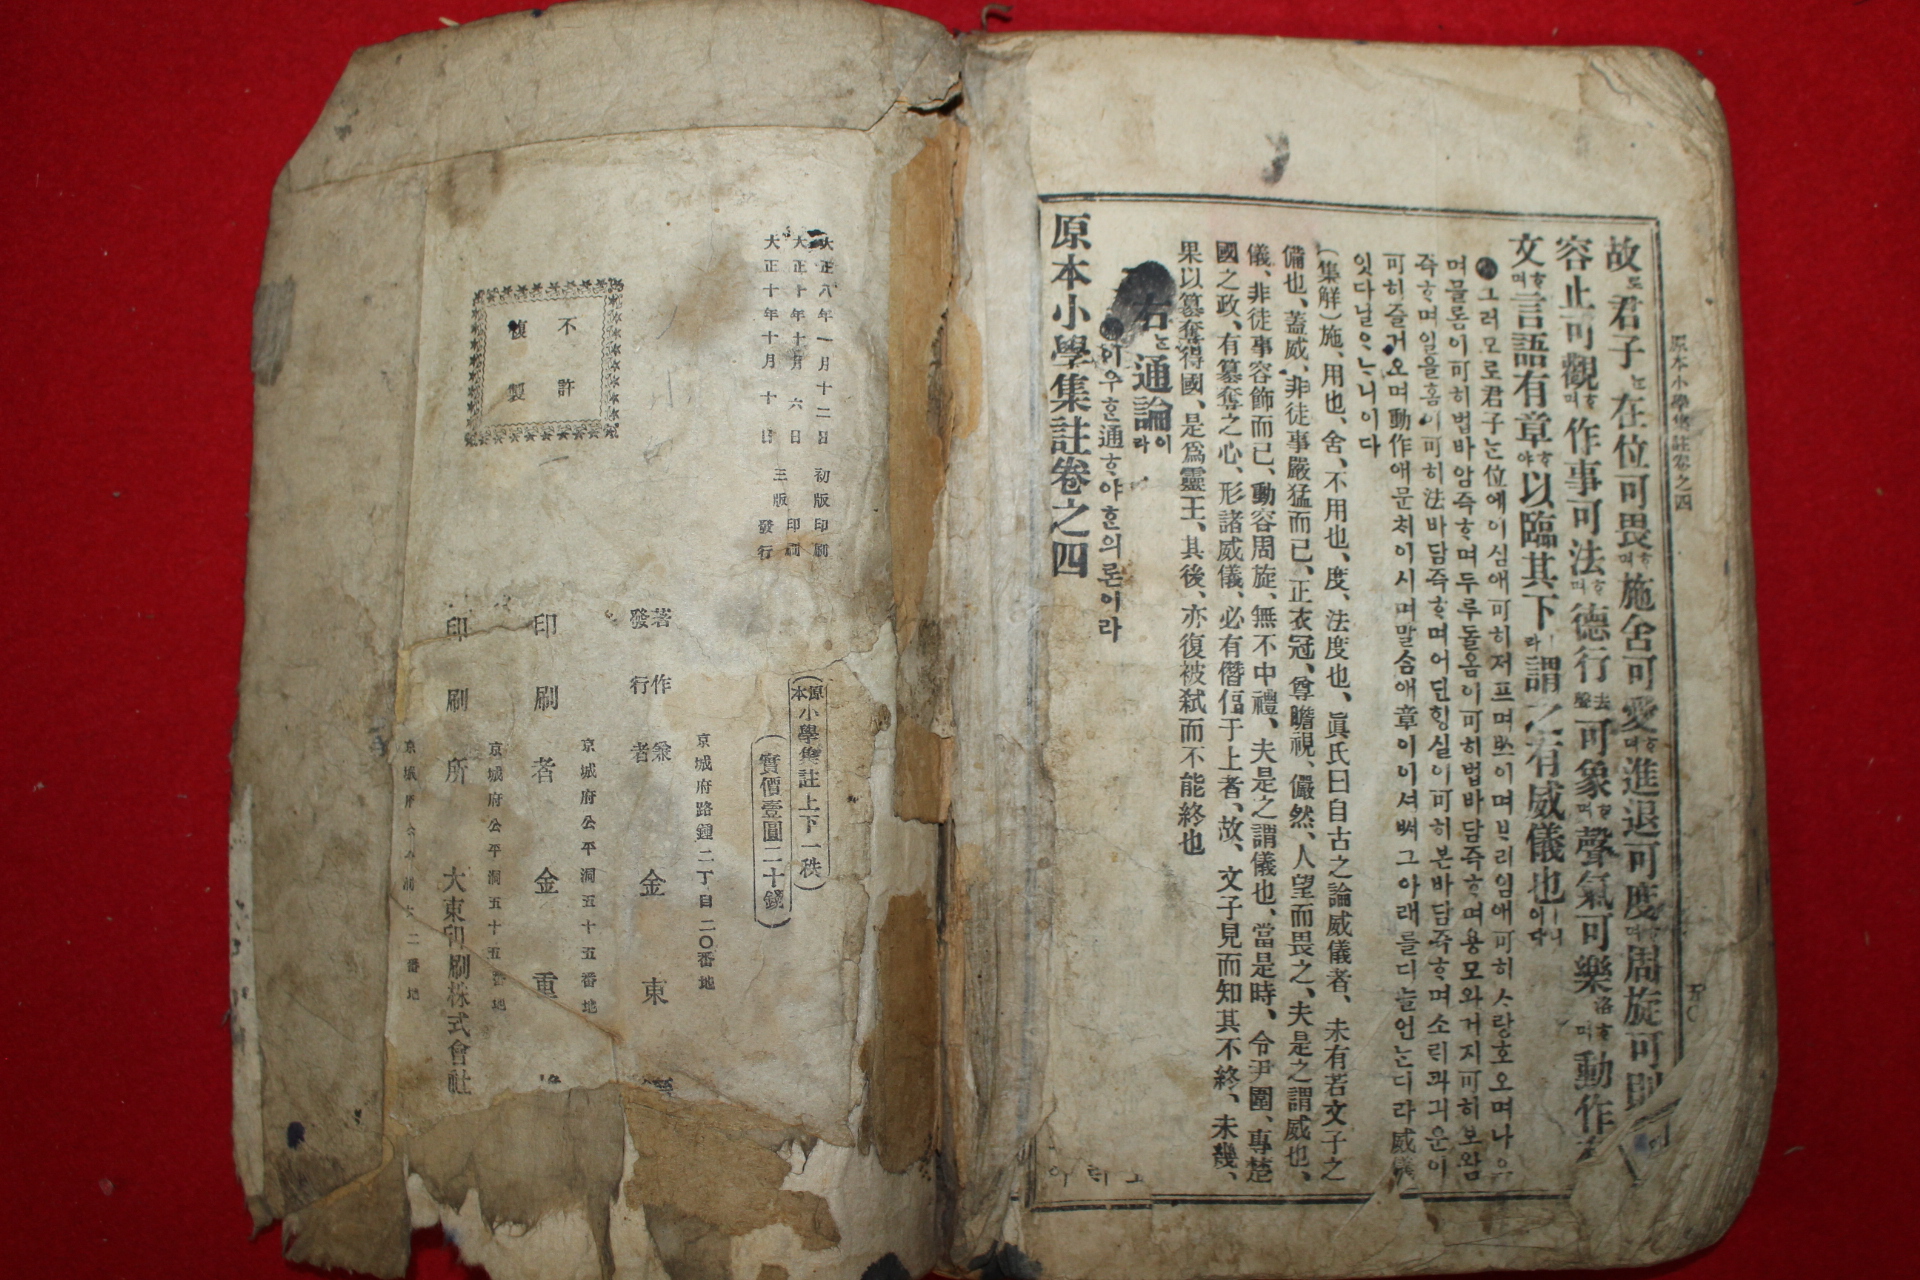 原本小學集註卷之四
故로君子는在位可畏하며施舍可愛하며進退可度하며周旋可則하며
容止可觀하며作事可法하며德行去聲可象하며聲氣可樂洛하며動作有
文하며言語有章하야以臨其下라謂之有威儀也ㅣ니이다
그러모로君子는位예이심애可히저프며
며믈롬이可히법바암즉ᄒᆞ며두루돌옴이可히법바담즉ᄒᆞ며용모와거지可히보암
즉ᄒᆞ며일을홈이可히法바담즉ᄒᆞ며어딘ᄒᆡᆼ실이可히본바담즉ᄒᆞ며소ᄅᆡ과긔운이
可히즐거오며動作애문치이시며말ᄉᆞᆷ애章이이셔ᄡᅥ그아래를디늘언ᄂᆞᆫ디라威儀
잇다닐ᄋᆞᄂᆞ니이다
(集解)施、用也、舍、不用也、度、法度也、眞氏曰自古之論威儀者、未有若文子之
備也、蓋威、非徒事嚴猛而已、正衣冠、尊瞻視、儼然、人望而畏之、夫是之謂威也、
儀、非徒事容飾而已、動容周旋、無不中禮、夫是之謂儀也、當是時、令尹圍、專楚
國之政、有簒奪之心、形諸威儀、必有僭偪于上者、故、文子見而知其不終、未幾、
果以簒奪得國、是爲靈王、其後、亦復被弑而不能終也
右는通論이라
이우ᄒᆞᆫ通ᄒᆞ야ᄒᆞᆫ의론이라
原本小學集註卷之四
大正八年一月十二日 初版印刷
大正十年十月 六 日 印刷
大正十年十月十日 三版發行
不許
複製
原本小學集註上下一秩
實價壹圓二十錢
京城府鍾路二丁目二〇番地
著作兼
發行者 金東
京城府公平洞五十五番地
印刷者 金重
京城府公平洞五十五番地
印刷所 大東印刷株式會社